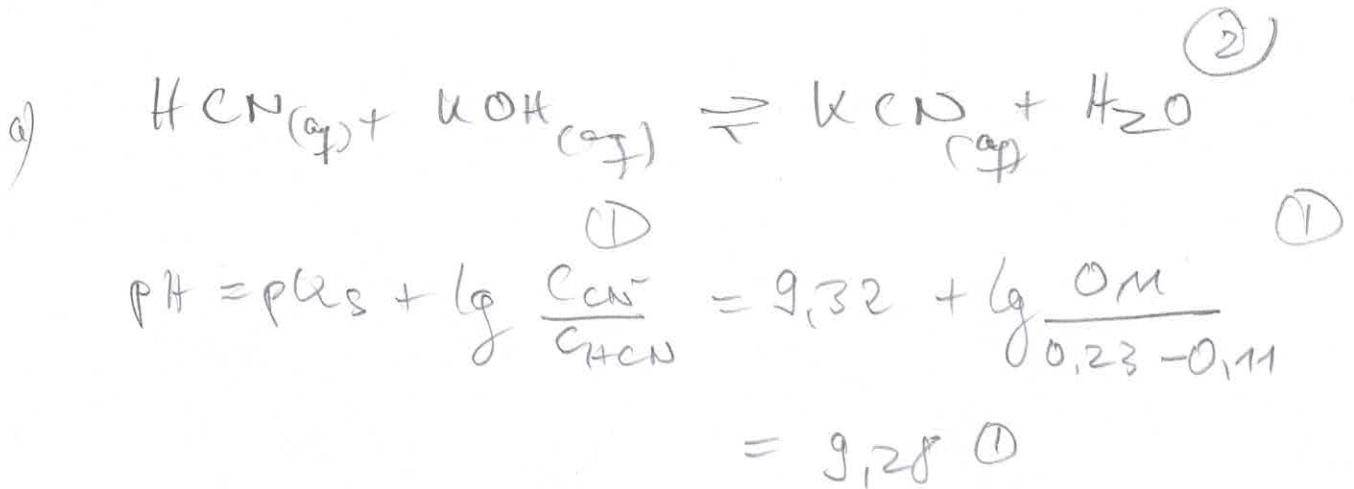 ②
a) HCN(aq) + KOH(aq) ⇌ KCN(aq) + H2O
① ①
pH = pKs + lg C_CN⁻ / C_HCN = 9,32 + lg 0,11 / 0,23 − 0,11
= 9,28 ①